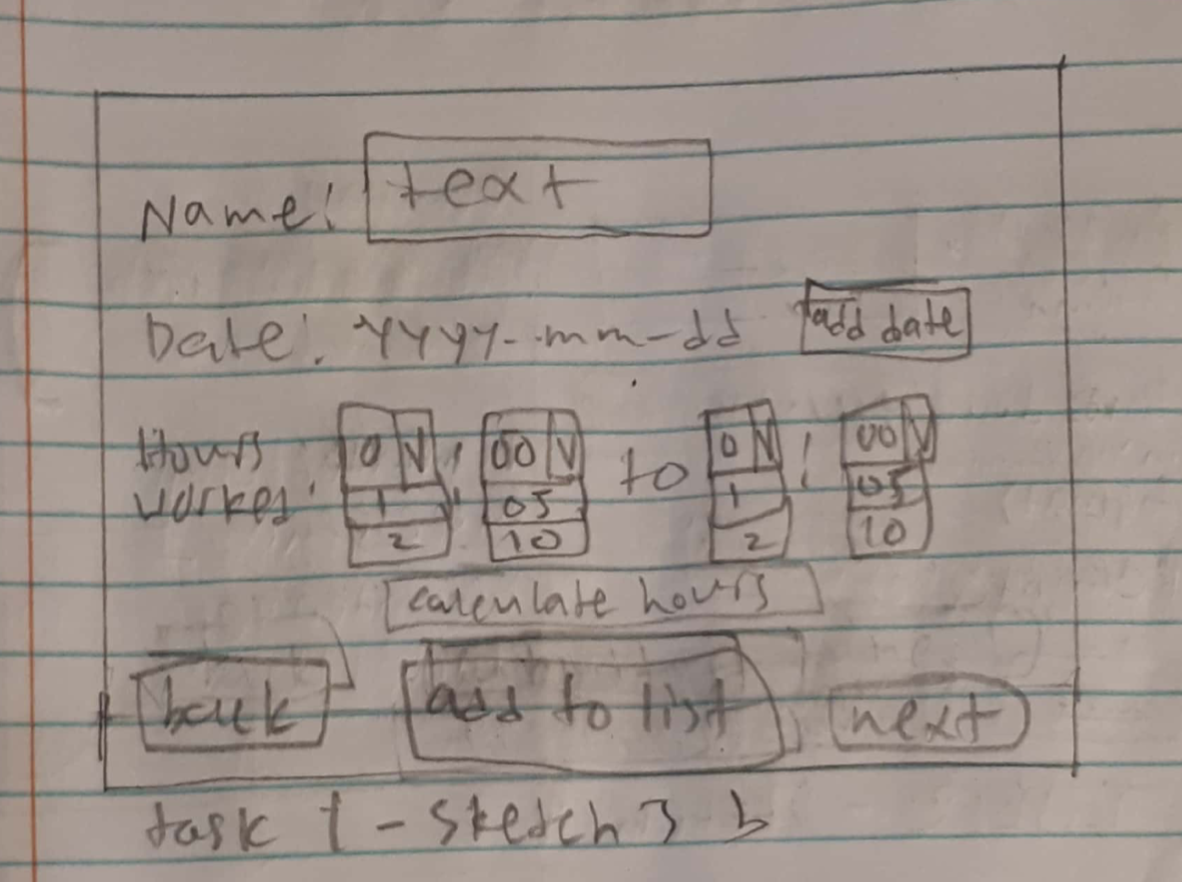 Name: text
Date: yyyy-mm-dd add date
Hours 0 V : 00 V to 0 V : 00 V
worked: 1 05 1 05
2 10 2 10
calculate hours
back add to list next
task 1 - sketch 3 b